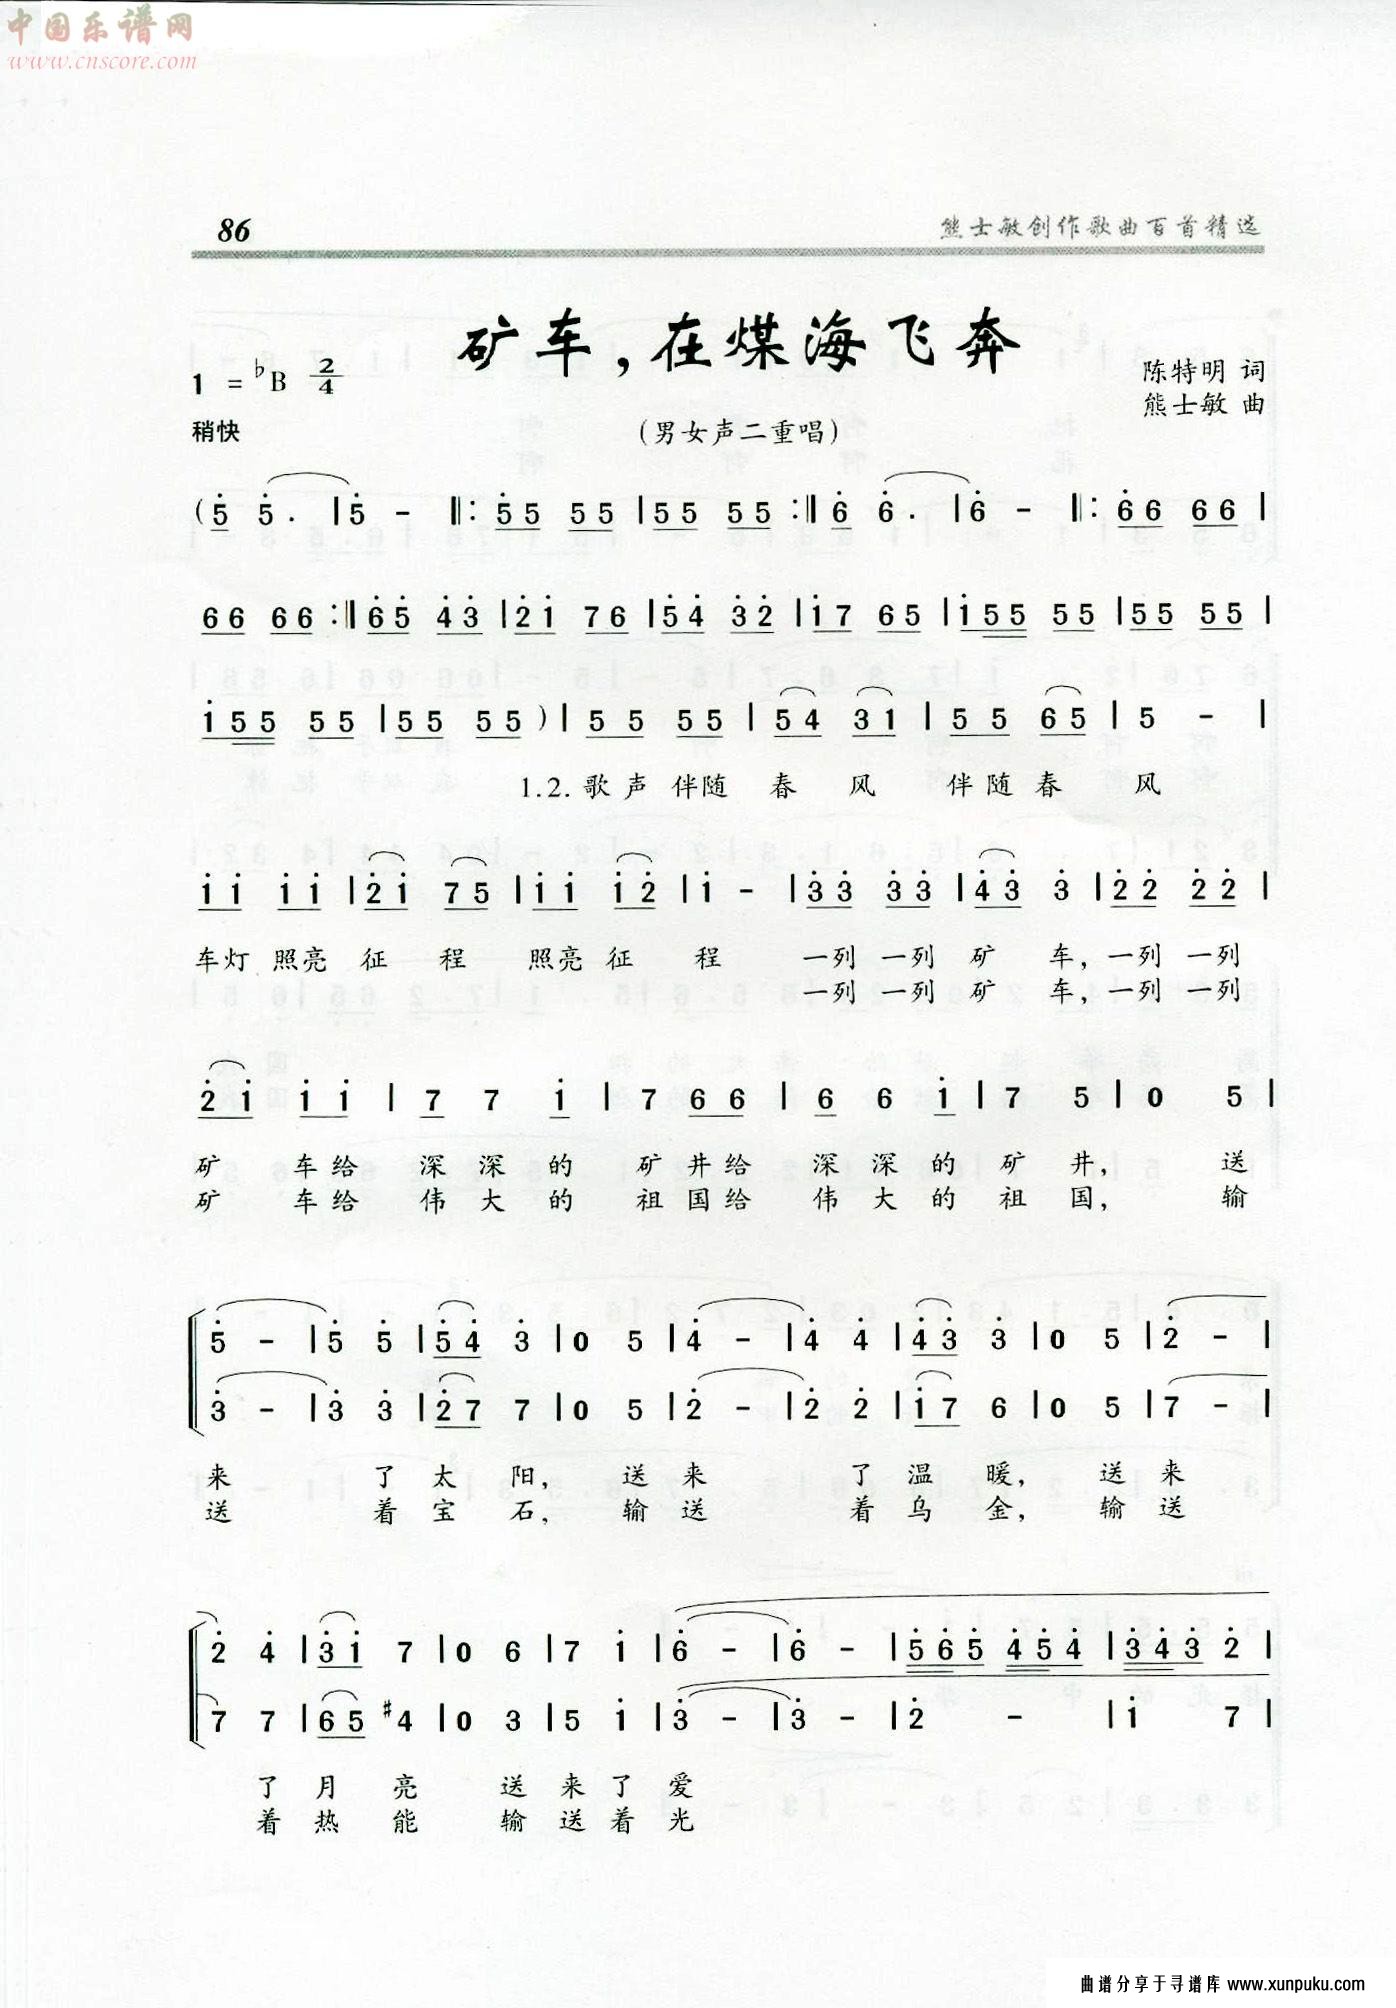 中国乐谱网
www.cnscore.com
86
熊士敏创作歌曲百首精选
矿车，在煤海飞奔
1 = ♭B 2/4
陈特明 词
熊士敏 曲
稍快
（男女声二重唱）
( 5̇ 5̇ . | 5̇ - ‖: 5̇5 55 | 55 55 :‖ 6̇ 6̇ . | 6̇ - ‖: 6̇6 66 |
66 66 :‖ 6̇5̇ 4̇3̇ | 2̇1̇ 76 | 5̇4̇ 3̇2̇ | 1̇7 65 | 1̇55 55 | 55 55 |
1̇55 55 | 55 55 ) | 55 55 | 54 31 | 55 65 | 5 - |
1.2. 歌声 伴随 春 风 伴随 春 风
1̇1̇ 1̇1̇ | 2̇1̇ 75 | 1̇1̇ 1̇2̇ | 1̇ - | 3̇3̇ 3̇3̇ | 4̇3̇ 3̇ | 2̇2̇ 2̇2̇ |
车灯 照亮 征 程 照亮 征 程 一列 一列 矿 车，一列 一列
一列 一列 矿 车，一列 一列
2̇1̇ 1̇1̇ | 7 7 1̇ | 7 66 | 6 6 1̇ | 7 5 | 0 5 |
矿 车给 深深的 矿井给 深深的 矿井， 送
矿 车给 伟大的 祖国给 伟大的 祖国， 输
5̇ - | 5̇ 5̇ | 5̇4̇ 3̇ | 0 5 | 4̇ - | 4̇ 4̇ | 4̇3̇ 3̇ | 0 5 | 2̇ - |
3̇ - | 3̇ 3̇ | 2̇7 7 | 0 5 | 2̇ - | 2̇ 2̇ | 1̇7 6 | 0 5 | 7 - |
来 了太 阳， 送来 了温 暖， 送来
送 着宝 石， 输送 着乌 金， 输送
2̇ 4̇ | 3̇1̇ 7 | 0 6 | 7 1̇ | 6̇ - | 6̇ - | 5̇6̇5̇ 4̇5̇4̇ | 3̇4̇3̇ 2̇ |
7 7 | 65 #4 | 0 3 | 5 1̇ | 3̇ - | 3̇ - | 2̇ - | 1̇ 7 |
了月 亮 送来了爱
着热 能 输送着光
曲谱分享于寻谱库 www.xunpuku.com